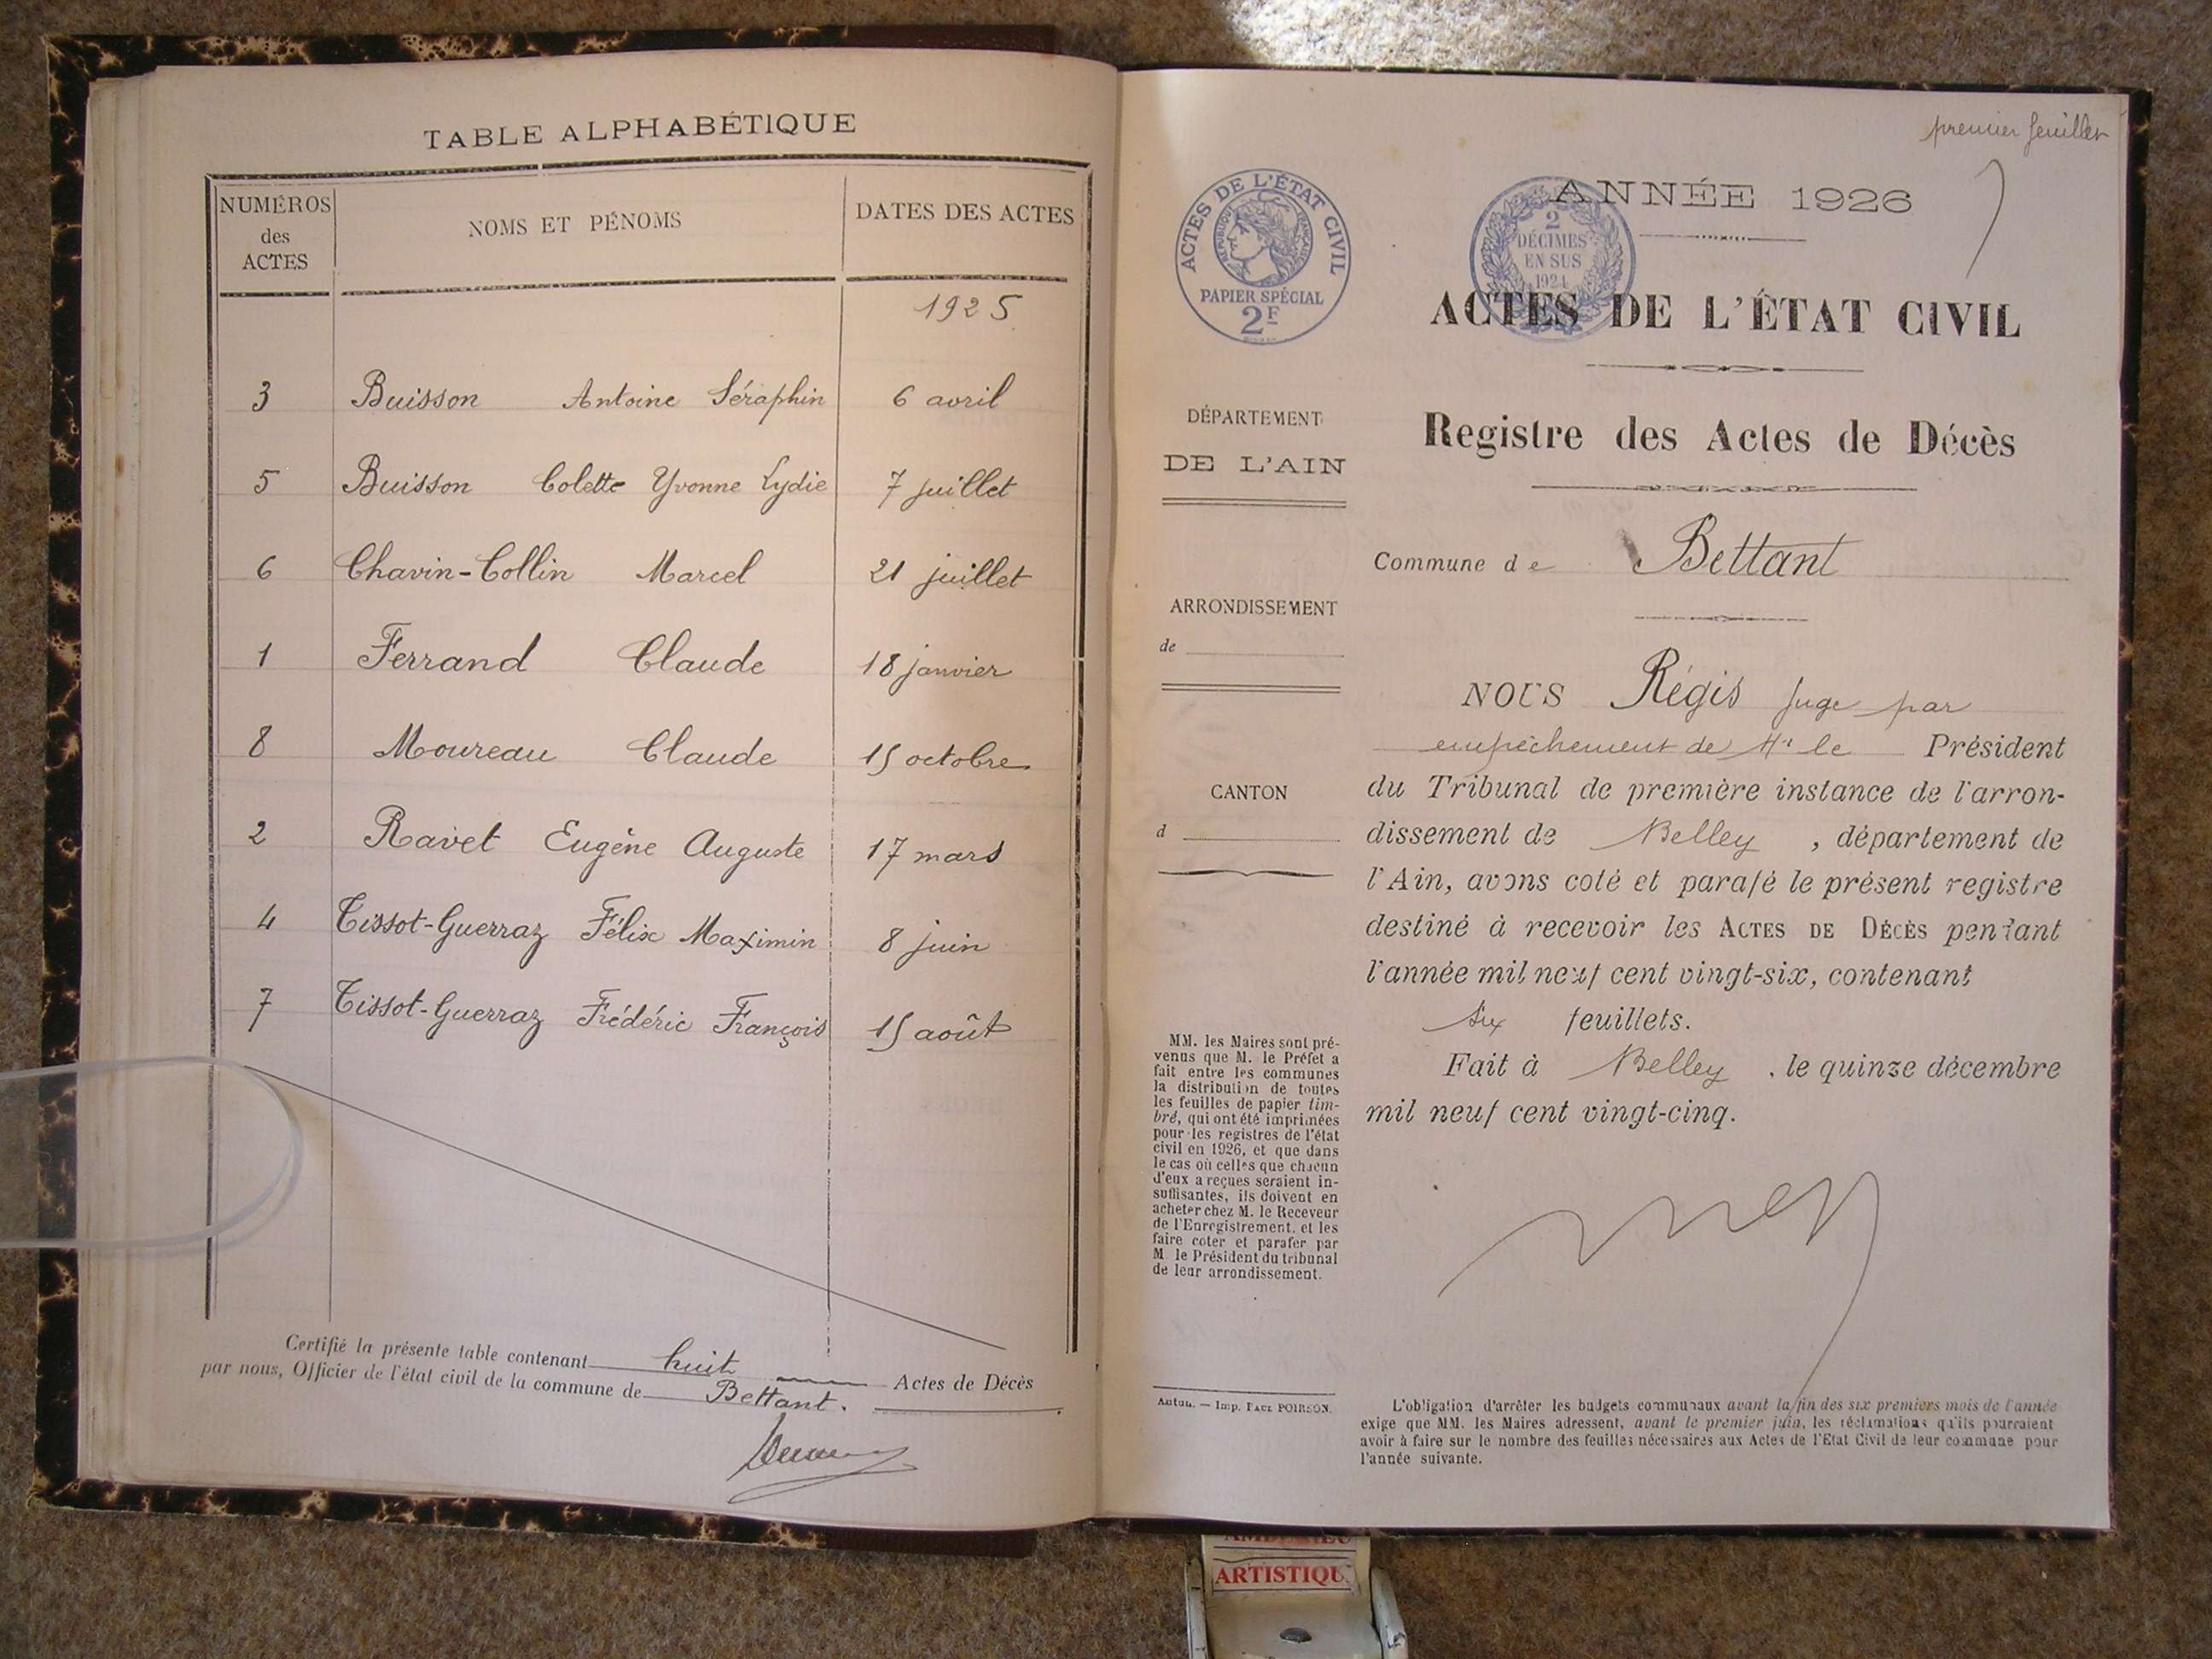 TABLE ALPHABÉTIQUE
NUMÉROS des ACTES NOMS ET PÉNOMS DATES DES ACTES
1925
3 Buisson Antoine Séraphin 6 avril
5 Buisson Colette Yvonne Lydie 7 juillet
6 Chavin-Collin Marcel 21 juillet
1 Ferrand Claude 18 janvier
8 Moureau Claude 15 octobre
2 Ravet Eugène Auguste 17 mars
4 Tissot-Guerraz Félix Maximin 8 juin
7 Tissot-Guerraz Frédéric François 15 août
Certifié la présente table contenant huit Actes de Décès
par nous, Officier de l'état civil de la commune de Bettant.
premier feuillet
ACTES DE L'ÉTAT CIVIL
RÉPUBLIQUE FRANÇAISE
PAPIER SPÉCIAL
2F
2
DÉCIMES
EN SUS
1924
ANNÉE 1926
ACTES DE L'ÉTAT CIVIL
Registre des Actes de Décès
Commune de Bettant
DÉPARTEMENT
DE L'AIN
ARRONDISSEMENT
de
CANTON
d
MM. les Maires sont pré-
venus que M. le Préfet a
fait entre les communes
la distribution de toutes
les feuilles de papier tim-
bré, qui ont été imprimées
pour les registres de l'état
civil en 1926, et que dans
le cas où celles que chacun
d'eux a reçues seraient in-
suffisantes, ils doivent en
acheter chez M. le Receveur
de l'Enregistrement, et les
faire coter et parafer par
M. le Président du tribunal
de leur arrondissement.
Autun. — Imp. PAUL POIRSON.
NOUS Régis Juge par
empêchement de Mr le Président
du Tribunal de première instance de l'arron-
dissement de Belley, département de
l'Ain, avons coté et parafé le présent registre
destiné à recevoir les ACTES DE DÉCÈS pendant
l'année mil neuf cent vingt-six, contenant
six feuillets.
Fait à Belley, le quinze décembre
mil neuf cent vingt-cinq.
L'obligation d'arrêter les budgets communaux avant la fin des six premiers mois de l'année
exige que MM. les Maires adressent, avant le premier juin, les réclamations qu'ils pourraient
avoir à faire sur le nombre des feuilles nécessaires aux Actes de l'Etat Civil de leur commune pour
l'année suivante.
ARTISTIQU